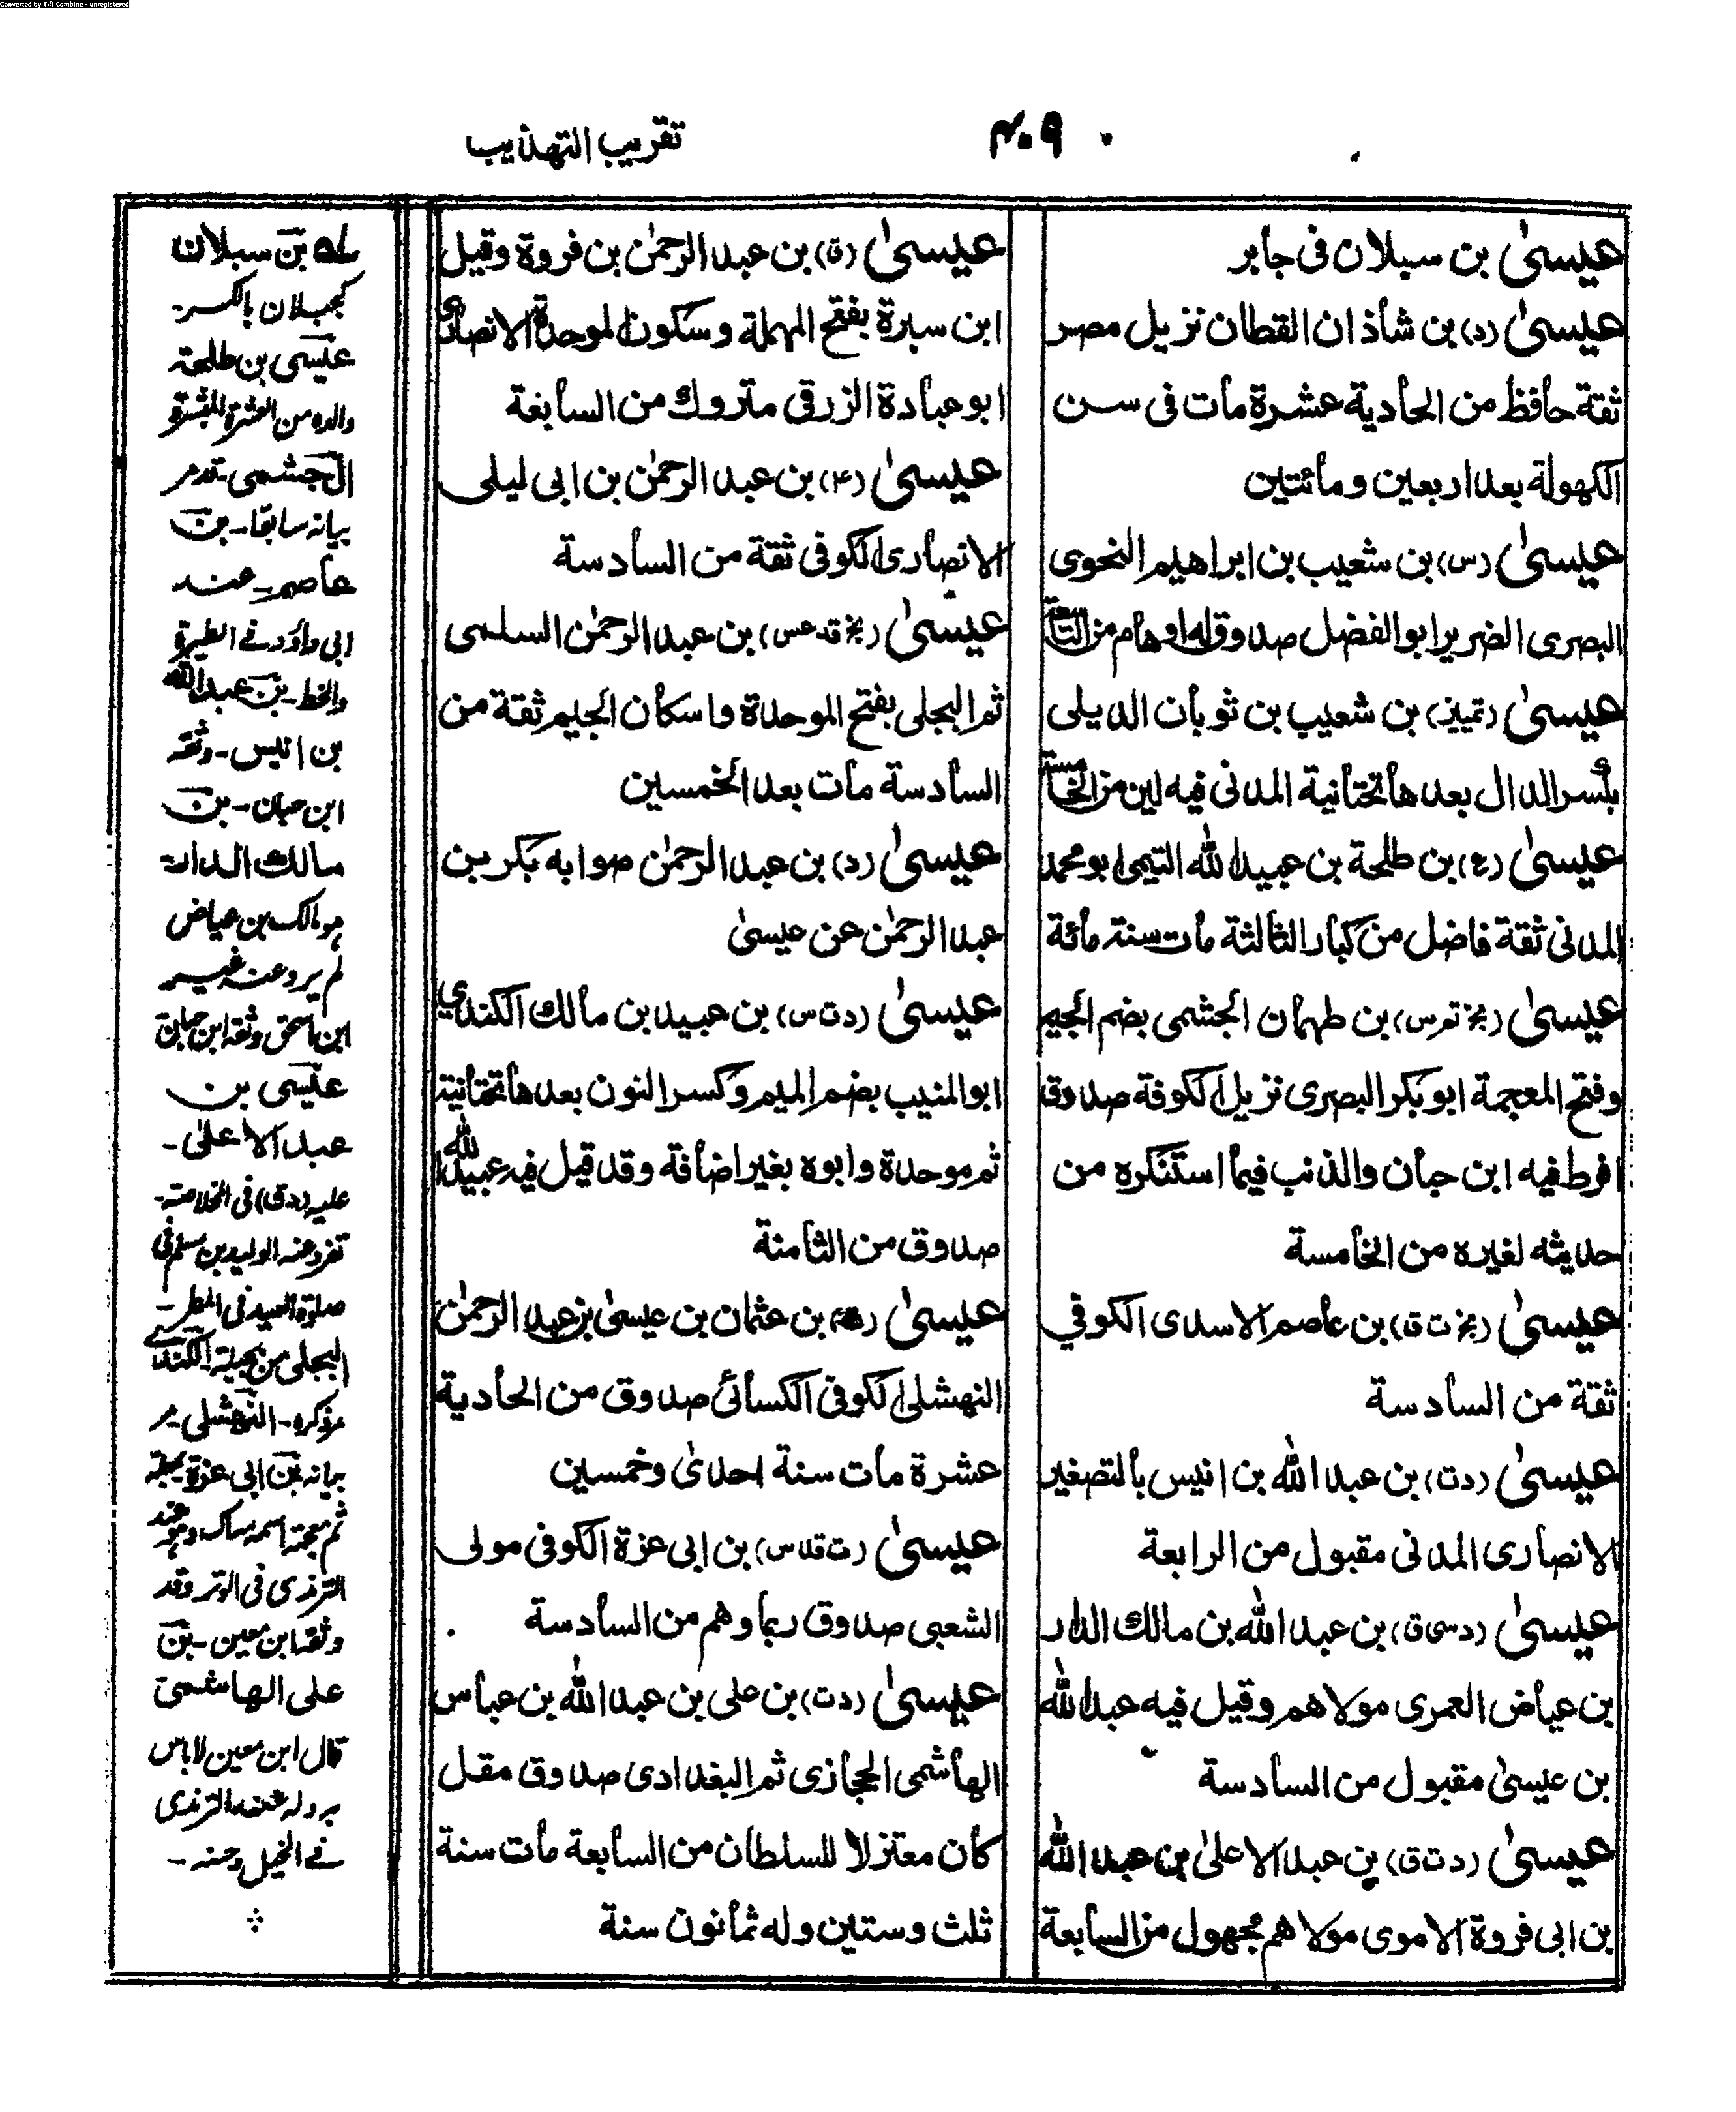 Converted by Tiff Combine - unregistered
۴۰۹
تقريب التهذيب
عيسىٰ بن سبلان فى جابر
عيسىٰ (د) بن شاذان القطان نزيل مصر
ثقة حافظ من الحادية عشرة مات فى سن
الكهولة بعد اربعين ومائتين
عيسىٰ (س) بن شعيب بن ابراهيم النحوى
البصرى الضرير ابو الفضل صدوق له اوهام من التاسعة
عيسىٰ (تمييز) بن شعيب بن ثوبان الديلى
بكسر الدال بعدها تحتانية المدنى فيه لين من الخامسة
عيسىٰ (ع) بن طلحة بن عبيد الله التيمى ابو محمد
المدنى ثقة فاضل من كبار الثالثة مات سنة مائة
عيسىٰ (بخ تم س) بن طهمان الجشمى بضم الجيم
وفتح المعجمة ابو بكر البصرى نزيل الكوفة صدوق
افرط فيه ابن حبان والذنب فيما استنكره من
حديثه لغيره من الخامسة
عيسىٰ (بخ ت ق) بن عاصم الاسدى الكوفي
ثقة من السادسة
عيسىٰ (د ت) بن عبد الله بن انيس بالتصغير
الانصارى المدنى مقبول من الرابعة
عيسىٰ (د سى ق) بن عبد الله بن مالك الدار
بن عياض العمرى مولاهم وقيل فيه عبد الله
بن عيسىٰ مقبول من السادسة
عيسىٰ (د ت ق) بن عبد الاعلىٰ بن عبد الله
بن ابى فروة الاموى مولاهم مجهول من السابعة
عيسىٰ (ق) بن عبد الرحمٰن بن فروة وقيل
ابن سبرة بفتح المهملة وسكون الموحدة الانصارى
ابو عبادة الزرقى متروك من السابعة
عيسىٰ (۴) بن عبد الرحمٰن بن ابى ليلى
الانصارى الكوفى ثقة من السادسة
عيسىٰ (بخ قد عس) بن عبد الرحمٰن السلمى
ثم البجلى بفتح الموحدة واسكان الجيم ثقة من
السادسة مات بعد الخمسين
عيسىٰ (د) بن عبد الرحمٰن صوابه بكر بن
عبد الرحمٰن عن عيسىٰ
عيسىٰ (د ت س) بن عبيد بن مالك الكندي
ابو المنيب بضم الميم وكسر النون بعدها تحتانية
ثم موحدة وابوه بغير اضافة وقد قيل فيه عبيد الله
صدوق من الثامنة
عيسىٰ بن عثمان بن عيسىٰ بن عبد الرحمٰن
النهشلى الكوفى الكسائى صدوق من الحادية
عشرة مات سنة احدىٰ وخمسين
عيسىٰ (ت قد س) بن ابى عزة الكوفى مولى
الشعبى صدوق ربما وهم من السادسة
عيسىٰ (د ت) بن على بن عبد الله بن عباس
الهاشمى الحجازى ثم البغدادى صدوق مقل
كان معتزلا للسلطان من السابعة مات سنة
ثلث وستين وله ثمانون سنة
له بن سبلان
كجبلان بالكسر-
عيسى بن طلحة
والده من العشرة المبشرة
الجشمى-قدمر
بيانه سابقا-بن
عاصم-عند
ابى داؤد فے الطيرة
والخط-بن عبد الله
بن انيس-وثقه
ابن حبان-بن
مالك الدار-
هو مالك بن عياض
لم يرو عنه غير
ابن اسحق وثقه ابن حبان
عيسى بن
عبد الاعلىٰ-
عليه (د ق) فى الخلاصة-
تفرد عنه الوليد بن مسلم فى
صلوة العيد فى المطر-
البجلى من بجيلة الكندے
مر ذكره-النهشلى-مر
بيانه بن ابى عزة بمهملة
ثم معجمة اسمه مساك وهو عند
الترمذى فى الوتر وقد
وثقه ابن معين-بن
على الهاشمى
قال ابن معين لاباس
به وله عند الترمذى
فے الخيل وحسنه-